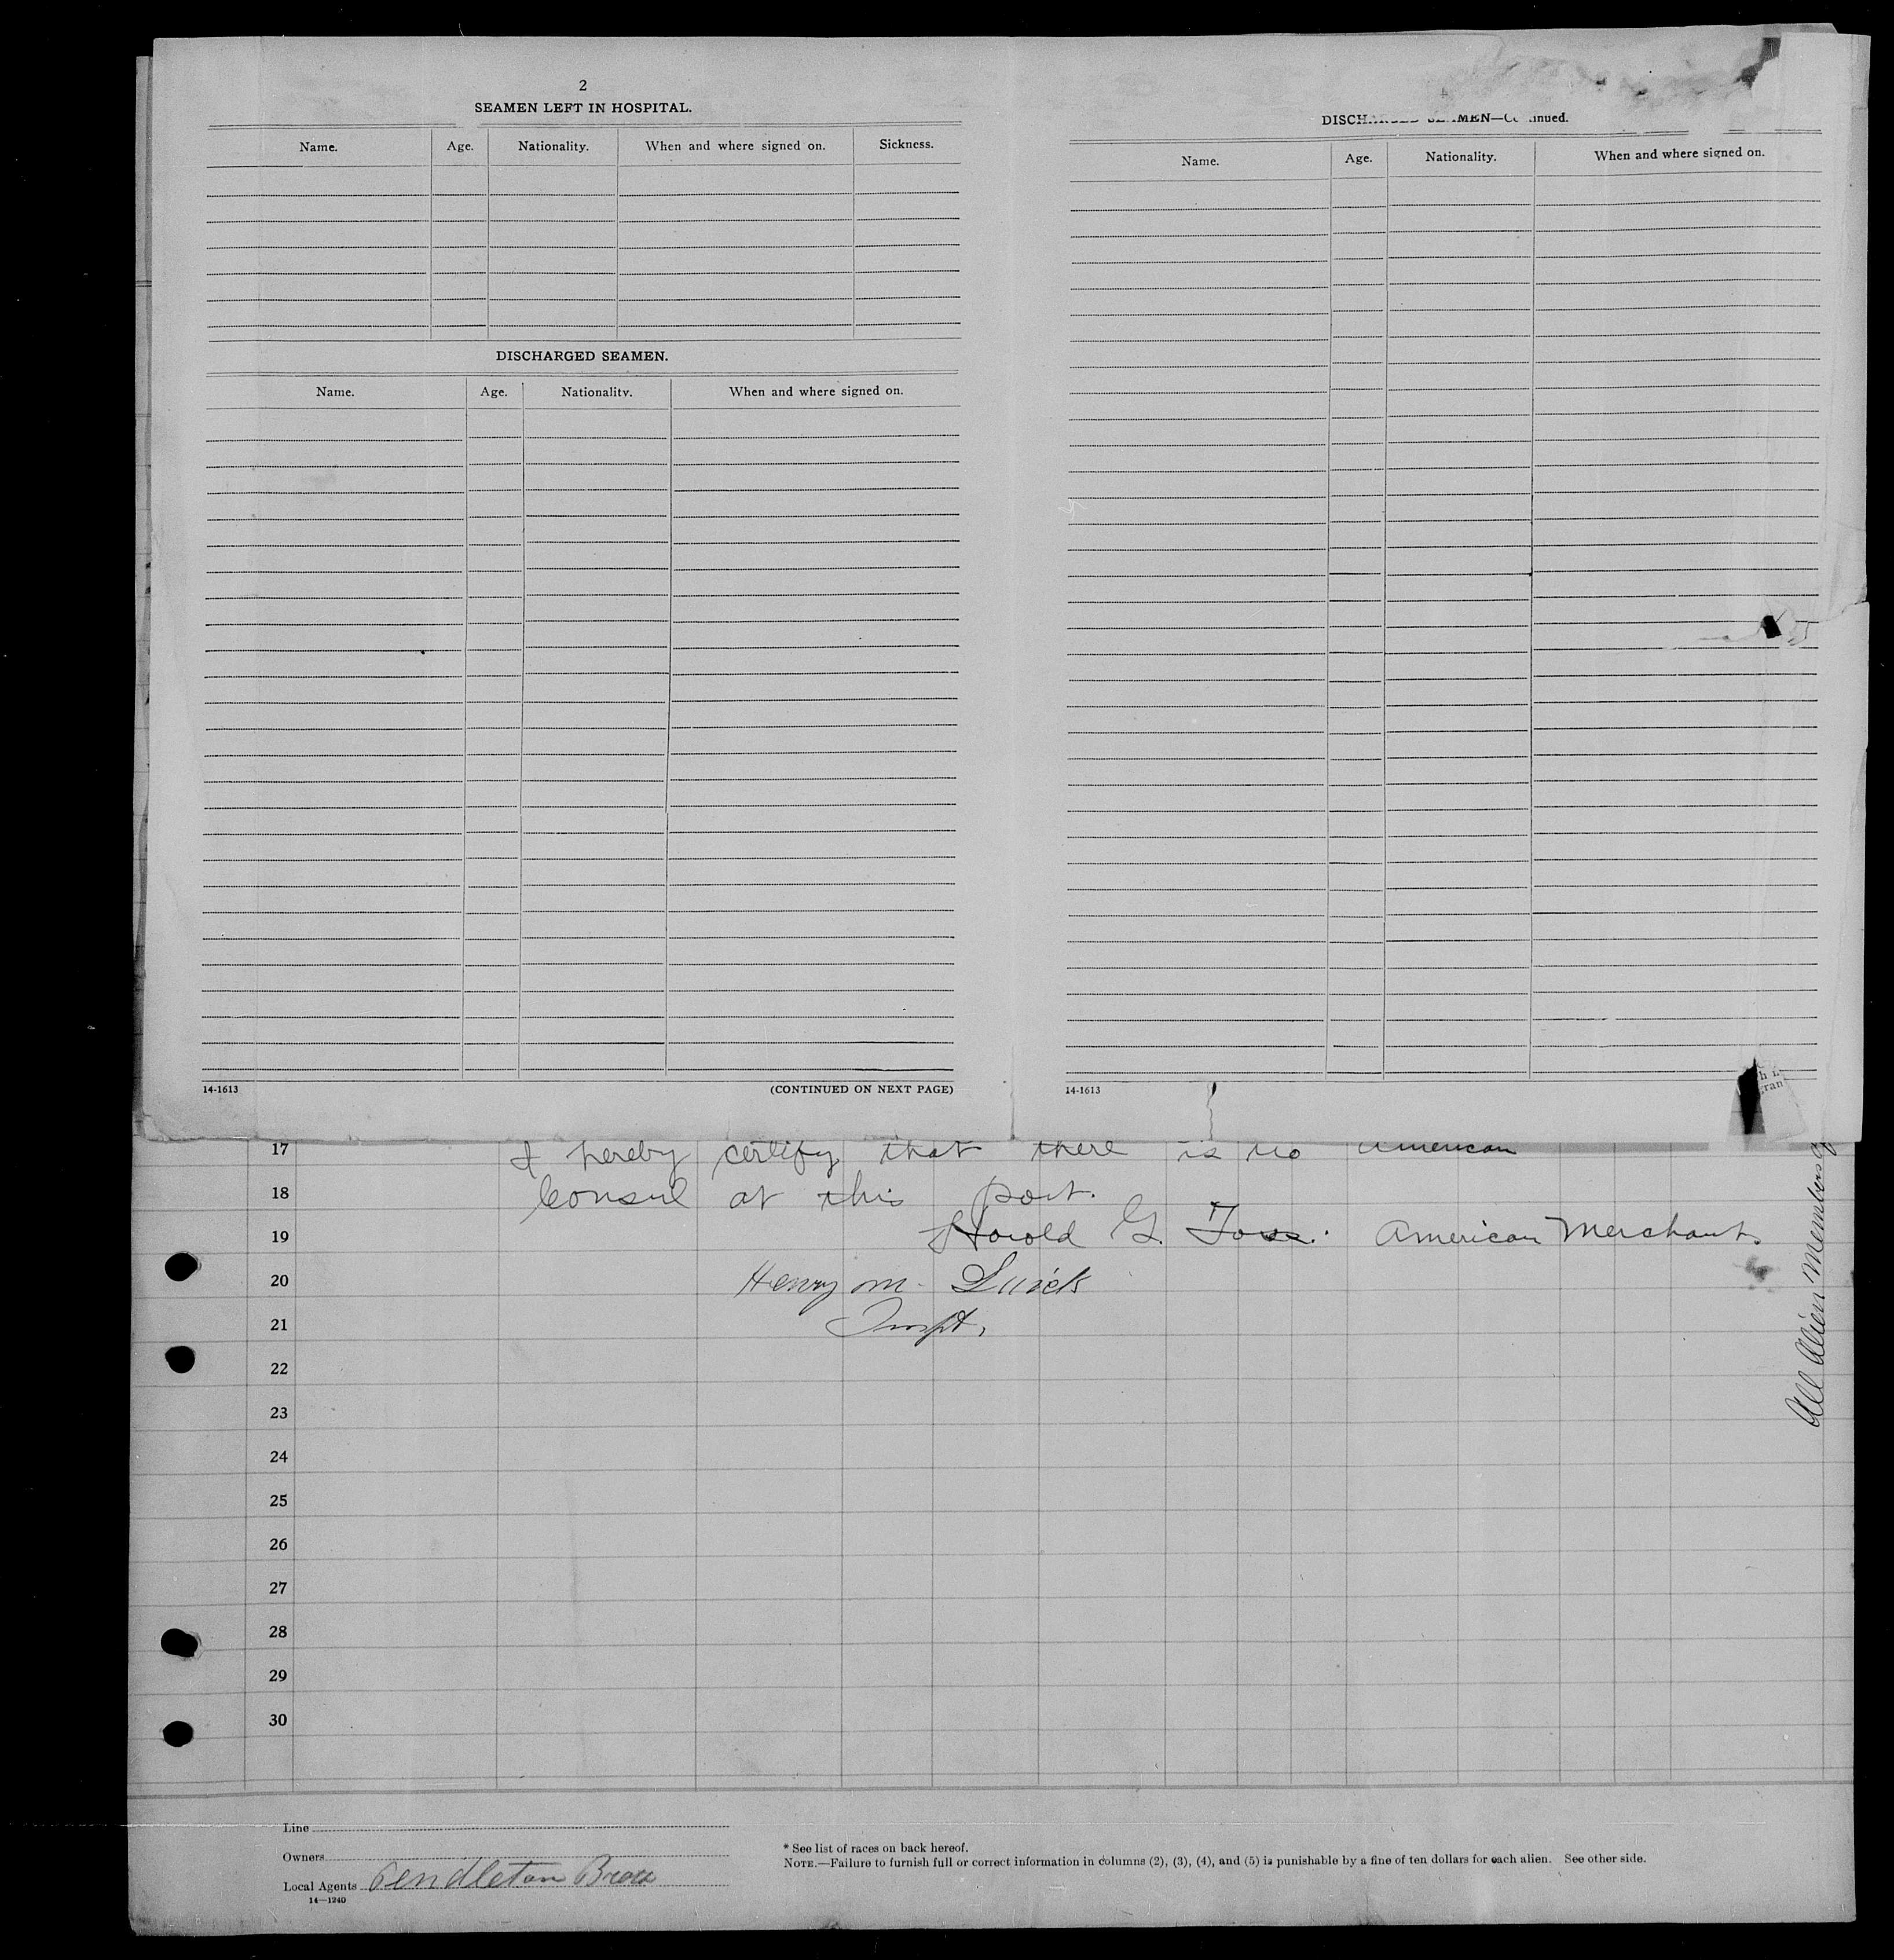 2
SEAMEN LEFT IN HOSPITAL.
Name. Age. Nationality. When and where signed on. Sickness.
DISCHARGED SEAMEN.
Name. Age. Nationality. When and where signed on.
14-1613 (CONTINUED ON NEXT PAGE)
MEN—
inued.
Name. Age. Nationality. When and where signed on.
14-1613
17 I hereby certify that there is no American
18 Consul at this port.
19 Harold G. American Merchant.
20 Henry M.
21 Inspt.
22
23
24
25
26
27
28
29
30
All Alien Members
Line
Owners
Local Agents Pendleton Bros
14—1240
* See list of races on back hereof.
NOTE.—Failure to furnish full or correct information in columns (2), (3), (4), and (5) is punishable by a fine of ten dollars for each alien. See other side.